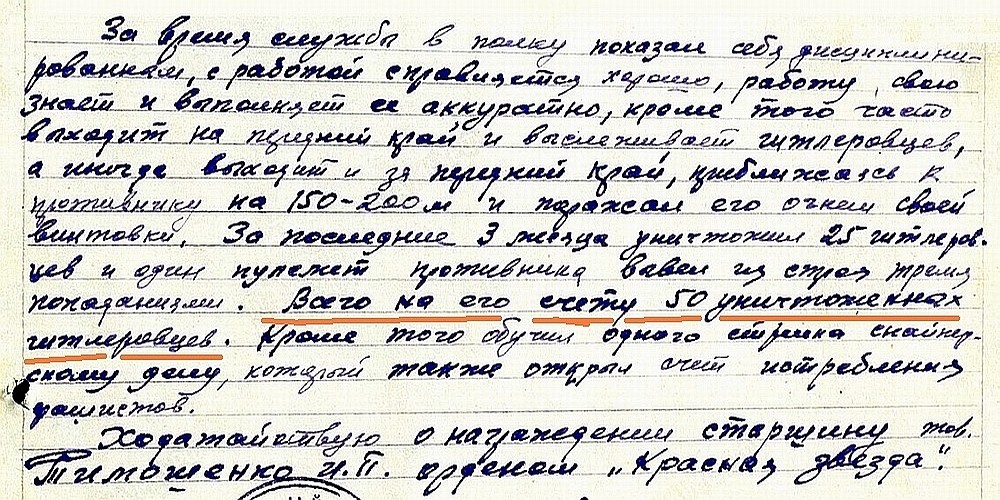 За время службы в полку показал себя дисциплини-
рованным, с работой справляется хорошо, работу свою
знает и выполняет ее аккуратно, кроме того часто
выходит на передний край и выслеживает гитлеровцев,
а иногда выходит и за передний край, приближаясь к
противнику на 150-200 м и поражал его огнем своей
винтовки. За последние 3 месяца уничтожил 25 гитлеров-
цев и один пулемет противника вывел из строя тремя
попаданиями. Всего на его счету 50 уничтоженных
гитлеровцев. Кроме того обучил одного стрелка снайпер-
скому делу, который также открыл счет истребления
фашистов.
Ходатайствую о награждении старшину тов.
Тимошенко И.П. орденом „Красная звезда".